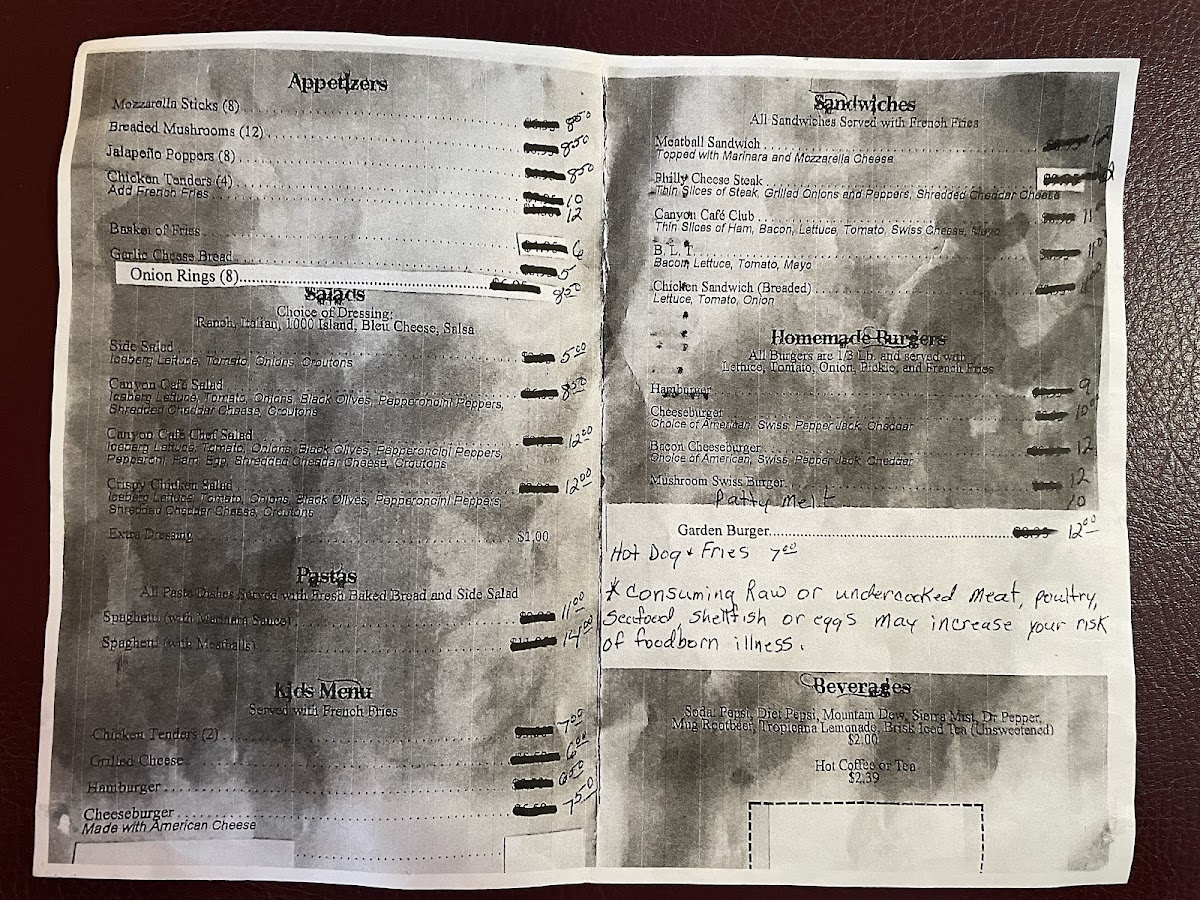 Appetizers
Mozzarella Sticks (8) 8.50
Breaded Mushrooms (12) 8.50
Jalapeño Poppers (8) 8.50
Chicken Tenders (4) 10
Add French Fries 12
Basket of Fries 6
Garlic Cheese Bread 5
Onion Rings (8) 8.50
Salads
Choice of Dressing:
Ranch, Italian, 1000 Island, Bleu Cheese, Salsa
Side Salad 5.00
Iceberg Lettuce, Tomato, Onions, Croutons
Canyon Café Salad 8.50
Iceberg Lettuce, Tomato, Onions, Black Olives, Pepperoncini Peppers,
Shredded Cheddar Cheese, Croutons
Canyon Café Chef Salad 12.00
Iceberg Lettuce, Tomato, Onions, Black Olives, Pepperoncini Peppers,
Pepperoni, Ham, Egg, Shredded Cheddar Cheese, Croutons
Crispy Chicken Salad 12.00
Iceberg Lettuce, Tomato, Onions, Black Olives, Pepperoncini Peppers,
Shredded Cheddar Cheese, Croutons
Extra Dressing $1.00
Pastas
All Pasta Dishes Served with Fresh Baked Bread and Side Salad
Spaghetti (with Marinara Sauce) 11.00
Spaghetti (with Meatballs) 14.00
Kids Menu
Served with French Fries
Chicken Tenders (2) 7.00
Grilled Cheese 6.00
Hamburger 6.50
Cheeseburger 7.50
Made with American Cheese
Sandwiches
All Sandwiches Served with French Fries
Meatball Sandwich 12
Topped with Marinara and Mozzarella Cheese
Philly Cheese Steak
Thin Slices of Steak, Grilled Onions and Peppers, Shredded Cheddar Cheese
Canyon Café Club 11
Thin Slices of Ham, Bacon, Lettuce, Tomato, Swiss Cheese, Mayo
B.L.T. 11.00
Bacon, Lettuce, Tomato, Mayo
Chicken Sandwich (Breaded) 11.00
Lettuce, Tomato, Onion
Homemade Burgers
All Burgers are 1/3 Lb. and served with
Lettuce, Tomato, Onion, Pickle, and French Fries
Hamburger 9
Cheeseburger 10
Choice of American, Swiss, Pepper Jack, Cheddar
Bacon Cheeseburger 12
Choice of American, Swiss, Pepper Jack, Cheddar
Mushroom Swiss Burger 12
Patty Melt 10
Garden Burger 12.00
Hot Dog + Fries 7.00
* Consuming Raw or undercooked meat, poultry,
Seafood, shellfish or eggs may increase your risk
of foodborn illness.
Beverages
Soda: Pepsi, Diet Pepsi, Mountain Dew, Sierra Mist, Dr Pepper,
Mug Rootbeer, Tropicana Lemonade, Brisk Iced Tea (Unsweetened)
$2.00
Hot Coffee or Tea
$2.39